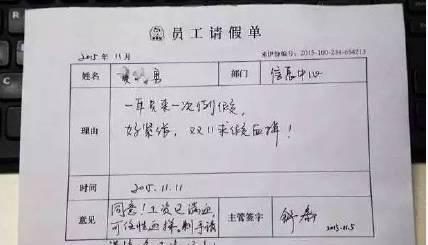 员工请假单
2015年 11月
来伊份编号：2015-100-234-654213
姓名
勇
部门
信息中心
理由
一年只来一次例假，
好紧张，双11求假血拼！
时间
2015.11.11
意见
同意！工资已满血，
可任性血拼，剁手请
主管签字
2015.11.5